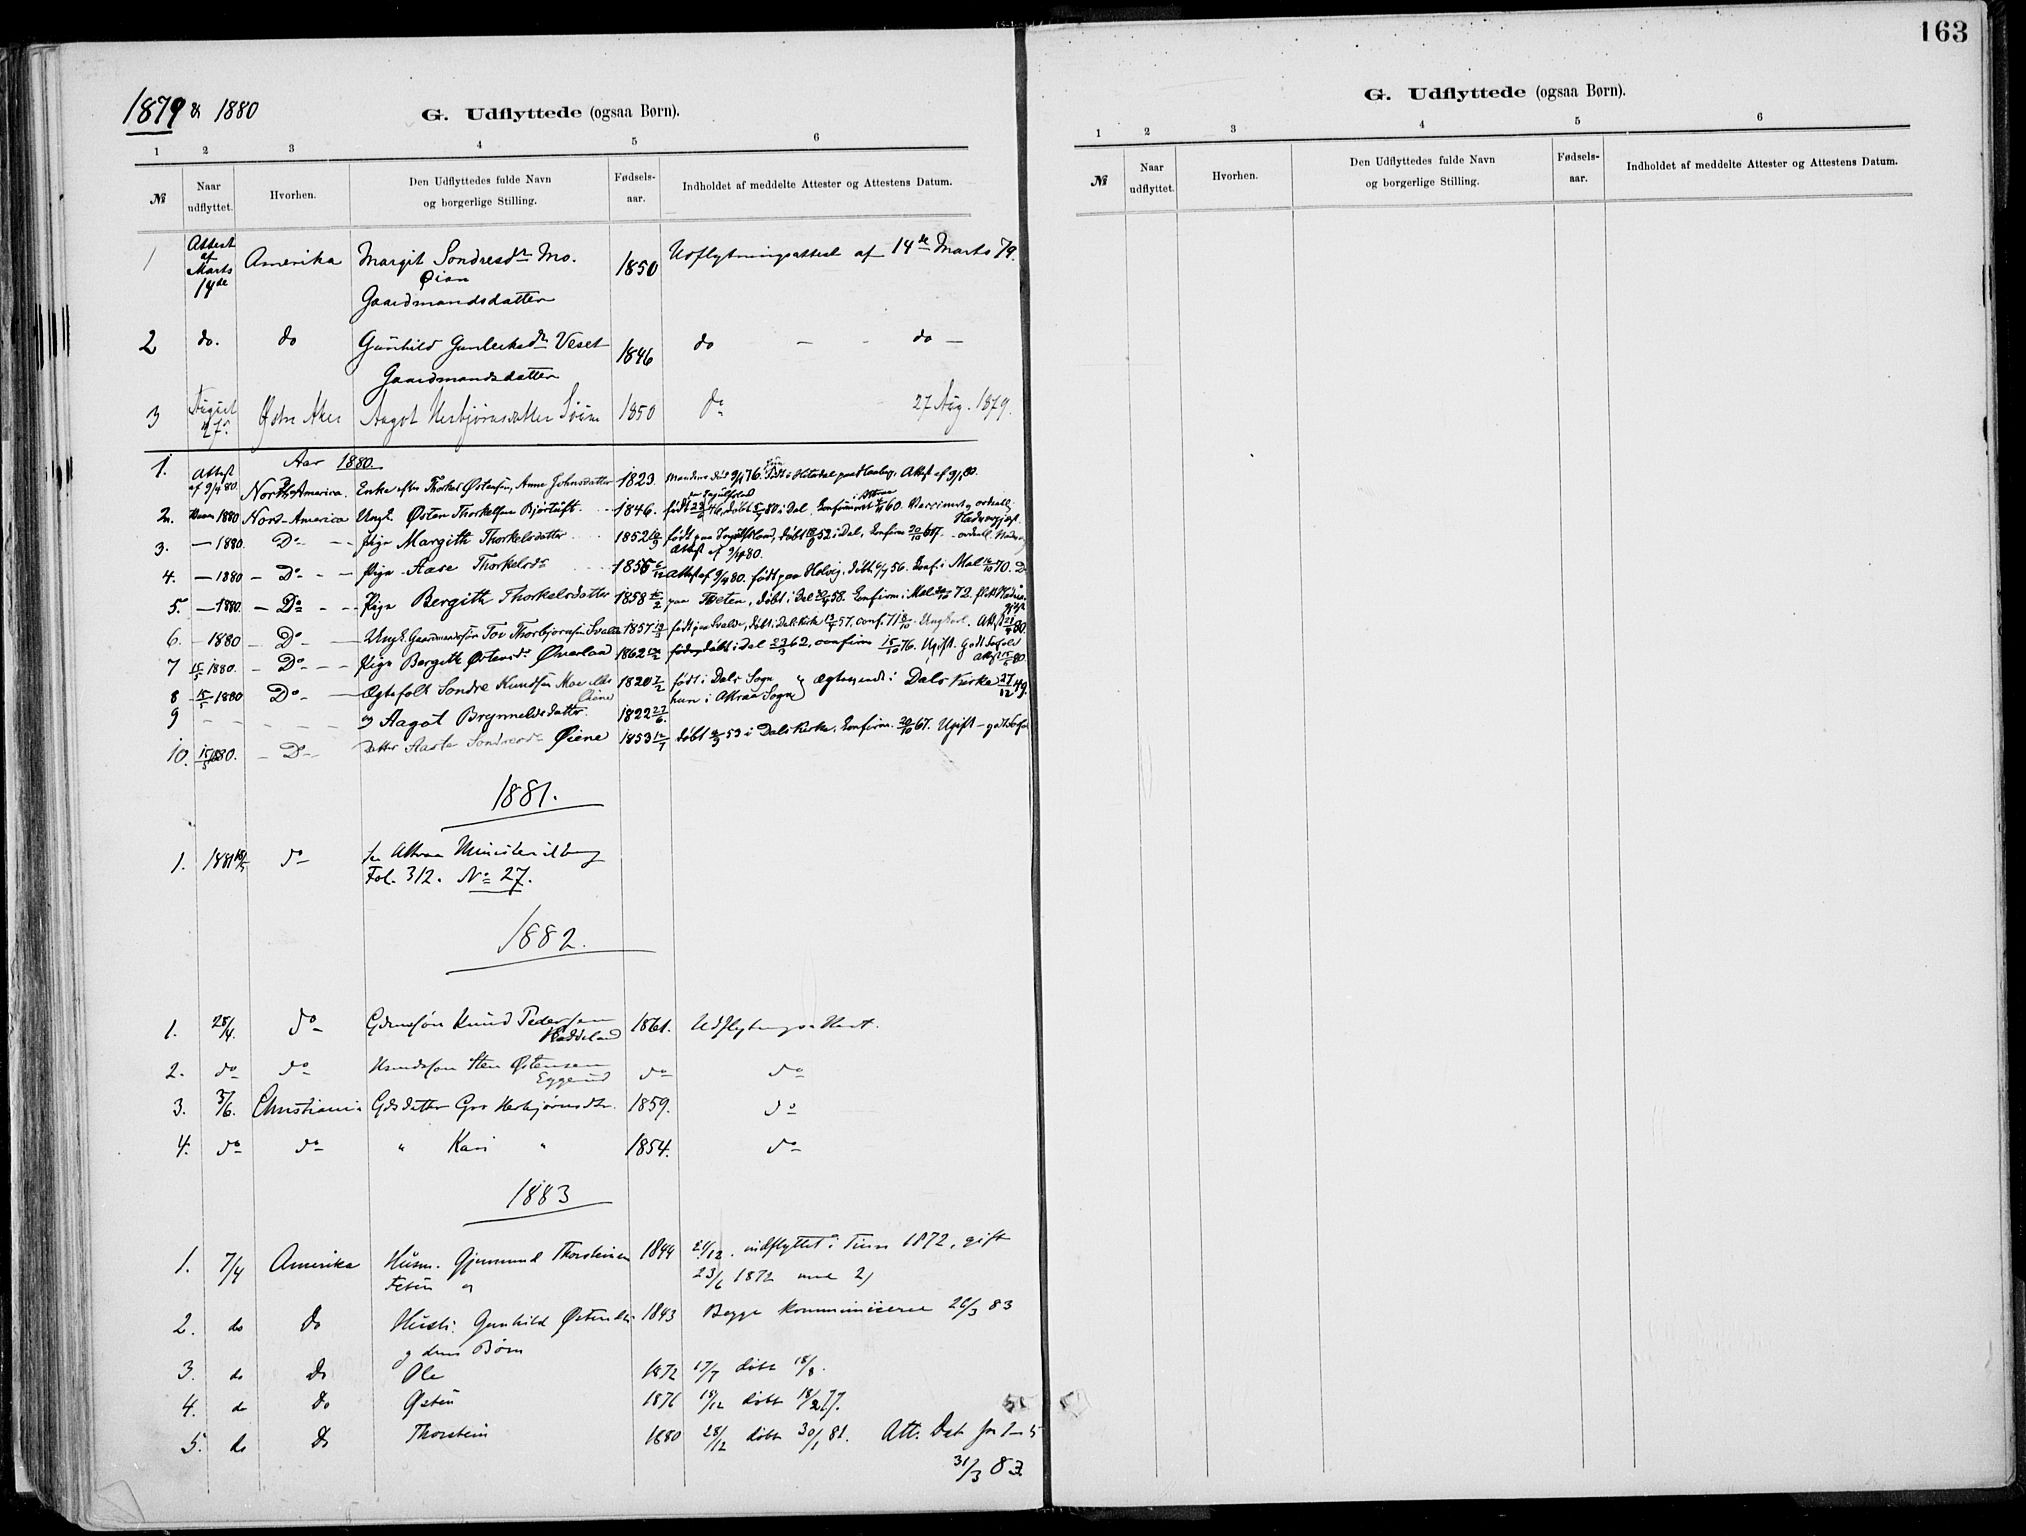 1879 & 1880
G. Udflyttede (ogsaa Børn).
1 2 3 4 5 6
№ Naar udflyttet. Hvorhen. Den Udflyttedes fulde Navn og borgerlige Stilling. Fødsels-aar. Indholdet af meddelte Attester og Attestens Datum.
1 Attest af Marts 14de Amerika Margit Sondresdr Mo. 1850 Udflytningsattest af 14de Marts 79.
Øian
Gaardmandsdatter
2 do. do Gunhild Gunleiksdr Veset 1846 do - - do -
Gaardmandsdatter
3 August 27. Østre Aker Aagot Herbjørnsdatter 1850 do 27 Aug. 1879.
Aar 1880.
1. Attest af 9/4 80 Nord-America. Enke efter Thorkel Østensen, Anne Johnsdatter 1823. Manden død 76. Attest af 80.
2. 1880 Nord-America Ungk. Østen Thorkelsen Bjørtuft 1846. født døbt i Dal. Confirmeret 60.
3. — 1880. Do - - Pige Margith Thorkelsdatter 1852 født paa døbt 52 i Dal, Confirm 20/10 67.
Attest af 9/4 80.
4. — 1880 - Do - - Pige Aase Thorkelsdr 1855 Attest af 9/4 80. født paa døbt 56. Conf. i Mæl 70. Do
5. — 1880. - Do - - Pige Bergith Thorkelsdatter 1858 paa Tveten, døbt i Dal 58. Confirm. i Mæl 72.
6. - 1880 - Do - Ungk. Gaardmandssøn Tov Thorbjørnsen 1857 født paa døbt i Dals Kirke 57. conf. 71 Ungkarl. Att. 80.
7 15/5 1880. - Do - - Pige Bergith Østensdr Øverland 1862 døbt i Dal 62, confirm 76. Ugift. Godt Forhold
Attest 15/5 80.
8 15/5 1880 Do - Ægtefolk Sondre Knudsen Moe 1820 født i Dals Sogn og ægteviet i Dals Kirke 27/12 49.
hun i Attraa Sogn
9 - - - - og Aagot Brynnelsdatter. 1822 27/6.
10. 15/5 1880. - Do - Datter Aaste Sondresdr Øiene 1853 døbt 53 i Dals Kirke. Confirm. 20/10 67. Ugift -
1881.
1. 1881 do se Attraa Ministerialbog
Fol. 312. No 27.
1882.
1. 28/4. do Gdmssøn Knud Pedersen 1861. Udflytningsattest.
2. do do Husmdssøn Sten Østensen do do
Eggerud
3. 3/6. Christiania Gdsdatter Gro Herbjørnsdtr. 1859. do
4. do do " Kari " 1854. do
1883
1. 7/4 Amerika Husm. Gjermund Thorsteinsen 1844 21/12. indflyttet i Tinn 1872, gift
23/6 1872 med 2)
2. do do Hustr. Gunhild Østensdtr 1843 Begge kommunicerer 26/3 83
og deres Børn
3. do do Ole 1872 17/7 døbt 18/8.
4. do do Østen 1876 19/12 døbt 18/2 77.
5. do do Thorstein 1880 28/12 døbt 30/1 81. Att. Dat. for 1-5
31/3 83.
163
G. Udflyttede (ogsaa Børn).
1 2 3 4 5 6
№ Naar udflyttet. Hvorhen. Den Udflyttedes fulde Navn og borgerlige Stilling. Fødsels-aar. Indholdet af meddelte Attester og Attestens Datum.